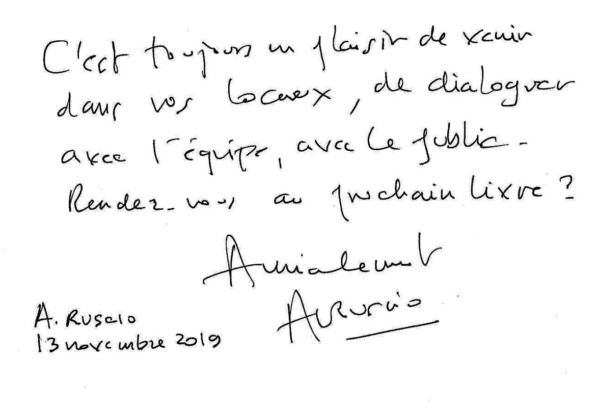 C'est toujours un plaisir de venir
dans vos locaux, de dialoguer
avec l'équipe, avec le public.
Rendez-vous au prochain livre ?
Amicalement
ARuscio
A. Ruscio
13 novembre 2019